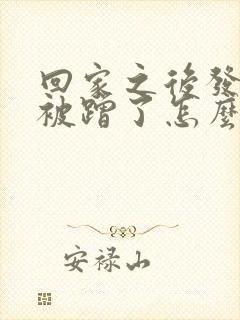 回家之後發
被蹭了怎麼
安禄山